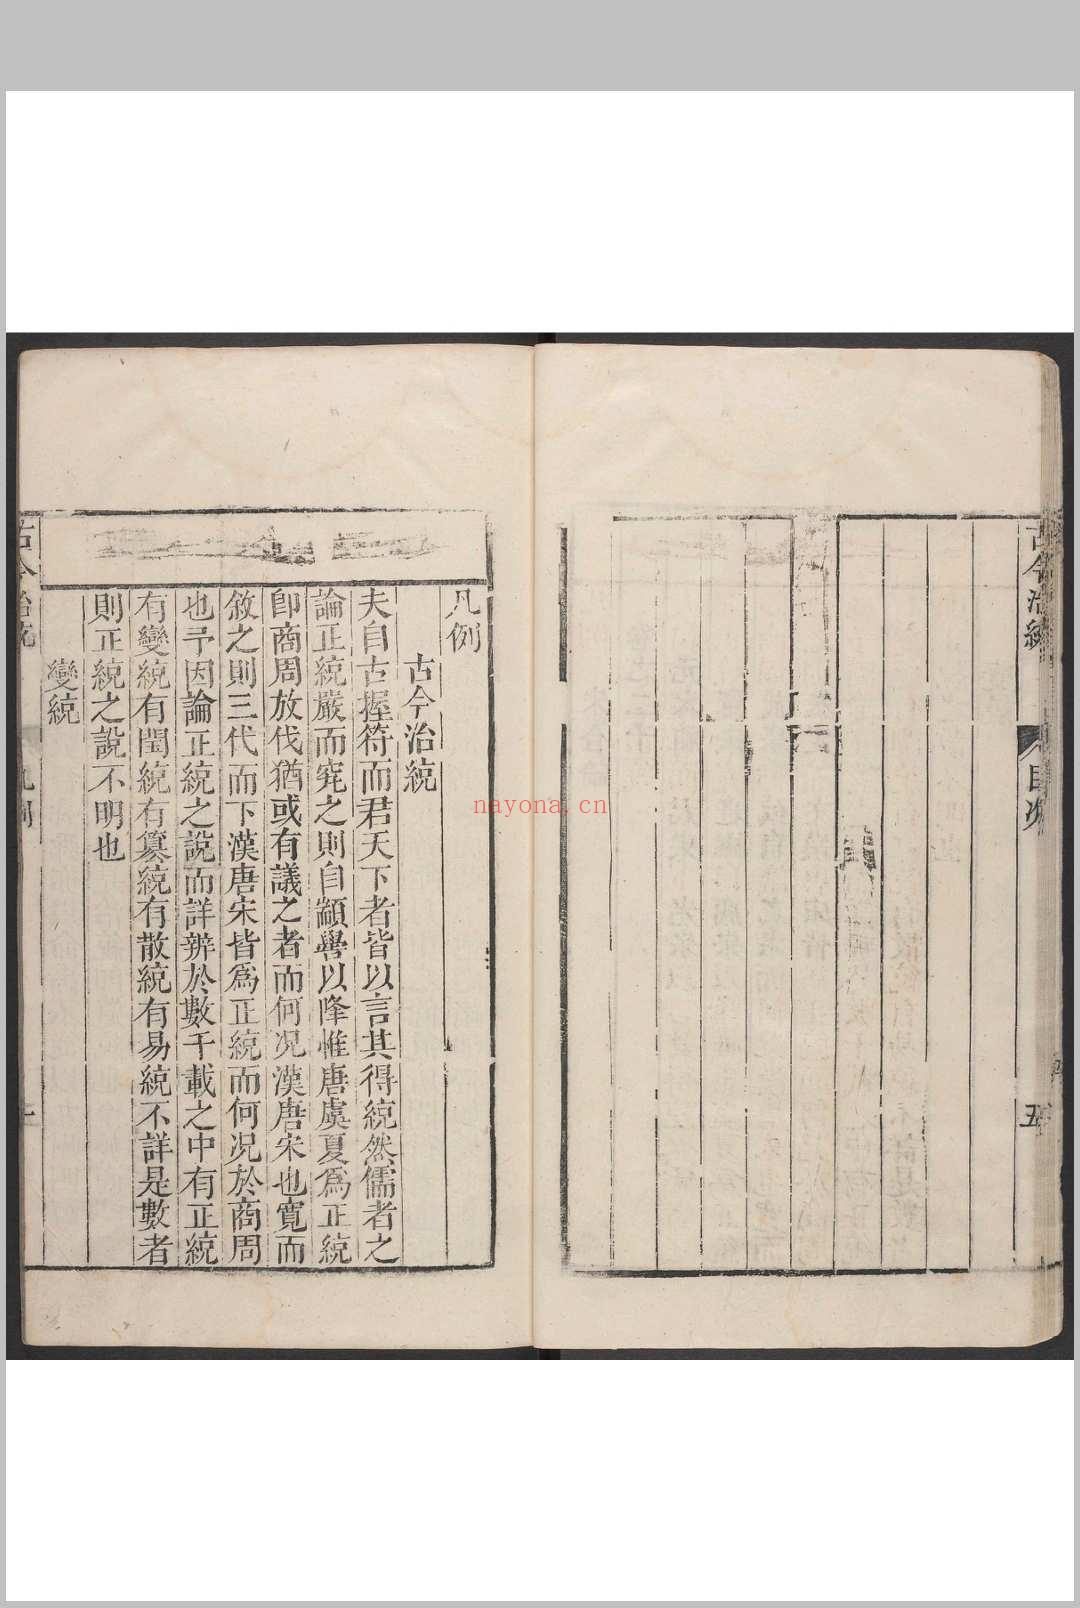 古今治統
目次
五
凡例
古今治統
夫自古握符而君天下者皆以言其得統然儒者之
論正統嚴而究之則自顓嚳以降惟唐虞夏爲正統
卽商周放伐猶或有議之者而何况漢唐宋也寬而
敘之則三代而下漢唐宋皆爲正統而何况於商周
也予因論正統之說而詳辨於數千載之中有正統
有變統有閏統有纂統有散統有易統不詳是數者
則正統之說不明也
變統
古今治統
凡例
nayona.cn